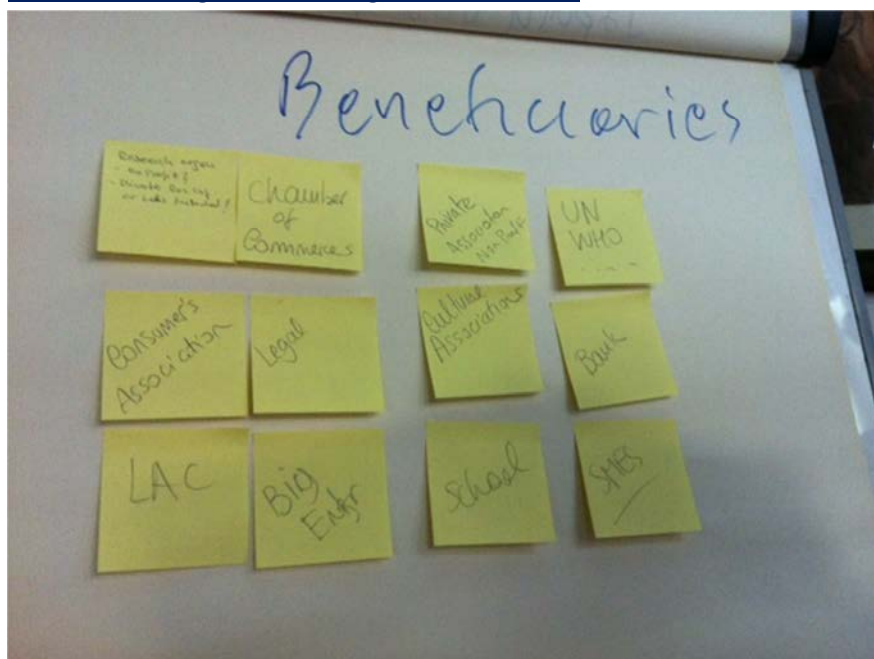 Beneficiaries
Research organ
- non profit?
- Private
or
Chamber
of
Commerces
Private
Association
Non Profit
UN
WHO
.....
Consumer's
Association
Legal
Culture
Associations
Bank
LAC
Big
Entr
School
SMEs